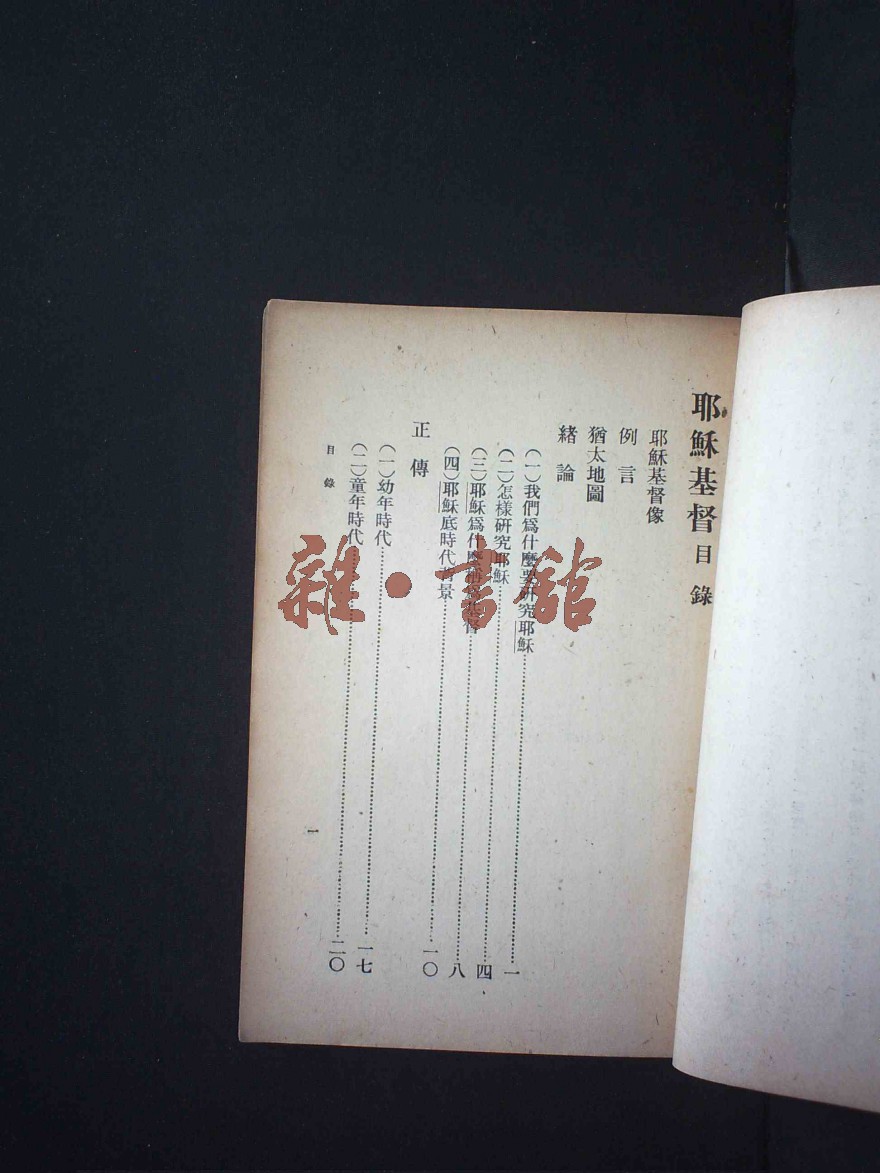 耶穌基督目錄
耶穌基督像
例言
猶太地圖
緒論
（一）我們爲什麼要研究耶穌……一
（二）怎樣研究耶穌……四
（三）耶穌爲什麼稱爲基督……八
（四）耶穌底時代背景……一〇
正傳
（一）幼年時代……一七
（二）童年時代……二〇
目錄
一
雜·書館